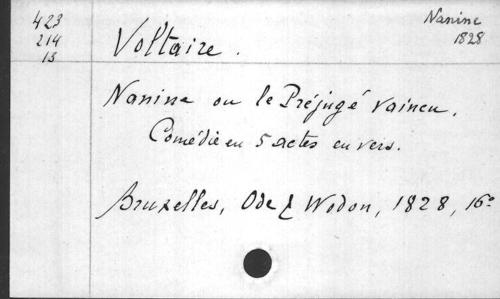 423
214
15
Nanine
1828
Voltaire.
Nanine ou le Préjugé vaincu.
Comédie en 5 actes en vers.
Bruxelles, Ode & Wodon, 1828, 16º